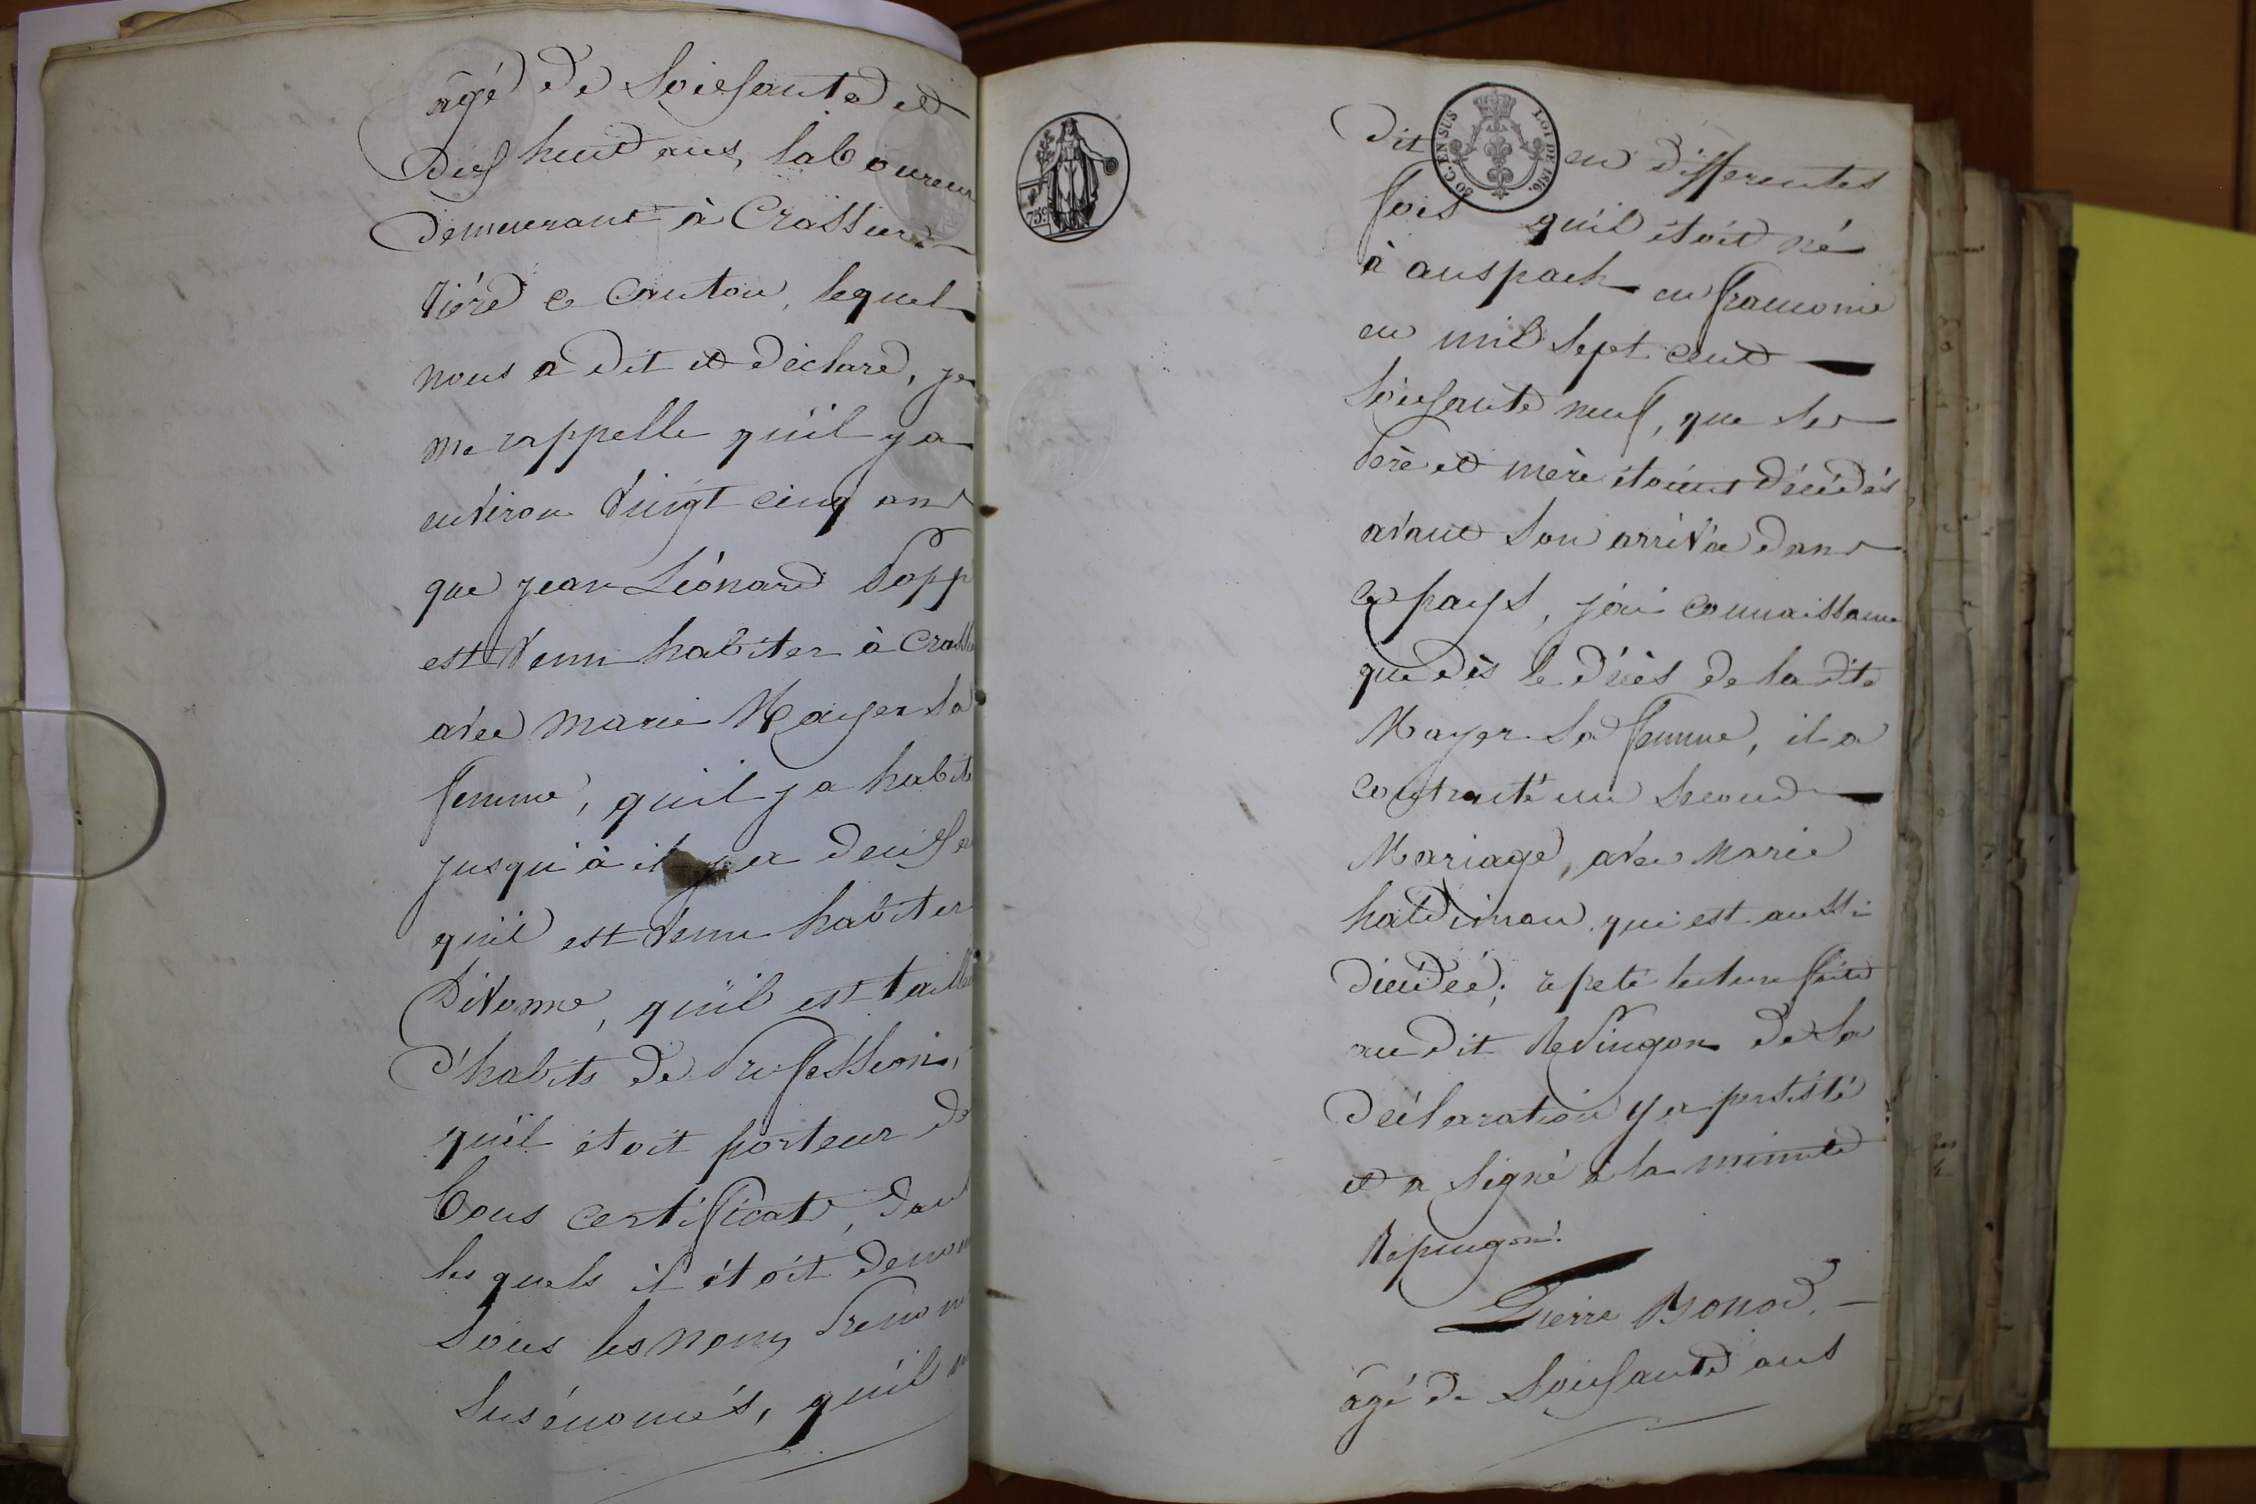 âgé de Soissante et
dix huit ans, laboureur
demeurant à Crassier
ce Canton, lequel
nous a dit et déclaré, je
me rappelle qu'il y a
environ Vingt cinq ans
que jean Léonard Popp
est Venu habiter à
avec Marie Mayer sa
femme, qu'il y a habité
jusqu'à il y a
qu'il est Venu habiter
Divonne, qu'il est
d'habits de Profession,
qu'il étoit porteur de
bons Certificats,
les quels il étoit
sous les noms
susénomés, qu'il
75 c.
50 C. EN SUS
LOI DE 1816.
Dit en differentes
fois qu'il étoit né
à anspach en franconie
en mil sept cent
soissante neuf, que ses
Père et mère étoient décédés
avant son arrivée dans
ce pays, j'ai connaissance
que dès le décès de la dite
Mayer sa femme, il a
contracté un second
Mariage, avec Marie
haldiman qui est aussi
lecture faite
au dit de sa
déclaration y a persisté
et a signé à la minute
Repingon.
Pierre Bonod.
âgé de Soissante ans